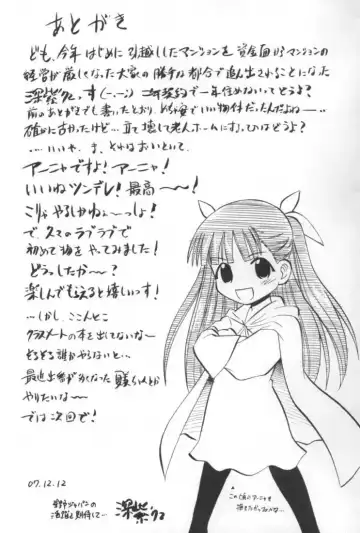 あとがき
ども、今年はじめに引越ししたマンションを資金面からマンションの
経営が厳しくなった大家の勝手な都合で追い出されることになった
深紫です(ー.ー;) 一年住めないってどうよ?
前のあとがきでも書いたとおり、めちゃ
いい物件だったんだよねー…
確かに古かったけど…取り壊して老人ホームにすってどうよ?
…いいや、ま、それはおいといて、
アーニャですよ!アーニャ!
いいねツンデレ!最高〜〜!
こりゃやるしかねぇ〜っしょ!
で、久々のラブラブで
初めて物をやってみました!
どうっしたか〜?
楽しんでもらえると嬉しいっす!
…しかし、ここんとこ
クラスメートの本を出してないな〜
そろそろ誰かやらないと…
最近出番が少なくなった
やりたいな〜
では次回で!
07.12.12
星野ジャパンの
活躍に期待して…
深紫
この頃のアーニャを